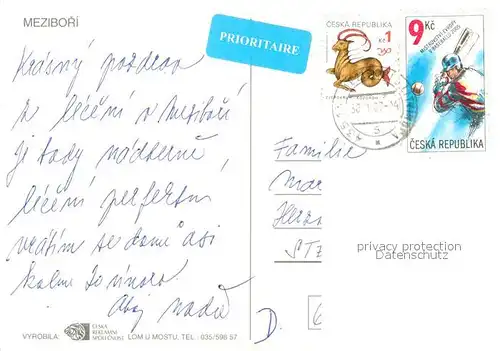 MEZIBOŘÍ
PRIORITAIRE
ČESKÁ REPUBLIKA
1
Kč
9 Kč
MISTROVSTVÍ EVROPY
V BASEBALLU 2005
ČESKÁ REPUBLIKA
Krásný pozdrav
z léčení v Meziboří
je tady nádherně,
léčení perfektní
vrátím se domů asi
kolem 10 února.
Ahoj
Familie
Mar
Herr
ST
privacy protection
Datenschutz
D.
VYROBILA:
ČESKÁ
REKLAMNÍ
SPOLEČNOST
LOM U MOSTU, TEL. 035/598 57